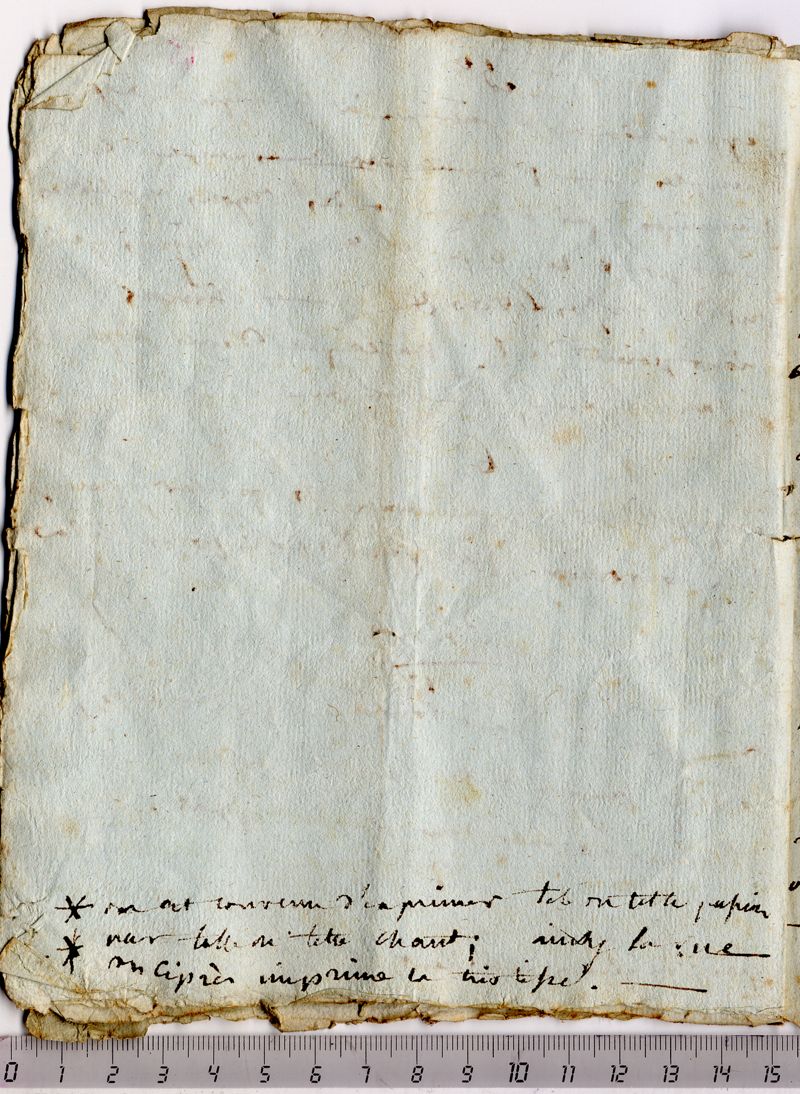 * on est convenu d'exprimer tel ou telle passion
* par tel ou telle chant; ainsy la vue
du Ciprès imprime la tristesse. —
0 1 2 3 4 5 6 7 8 9 10 11 12 13 14 15